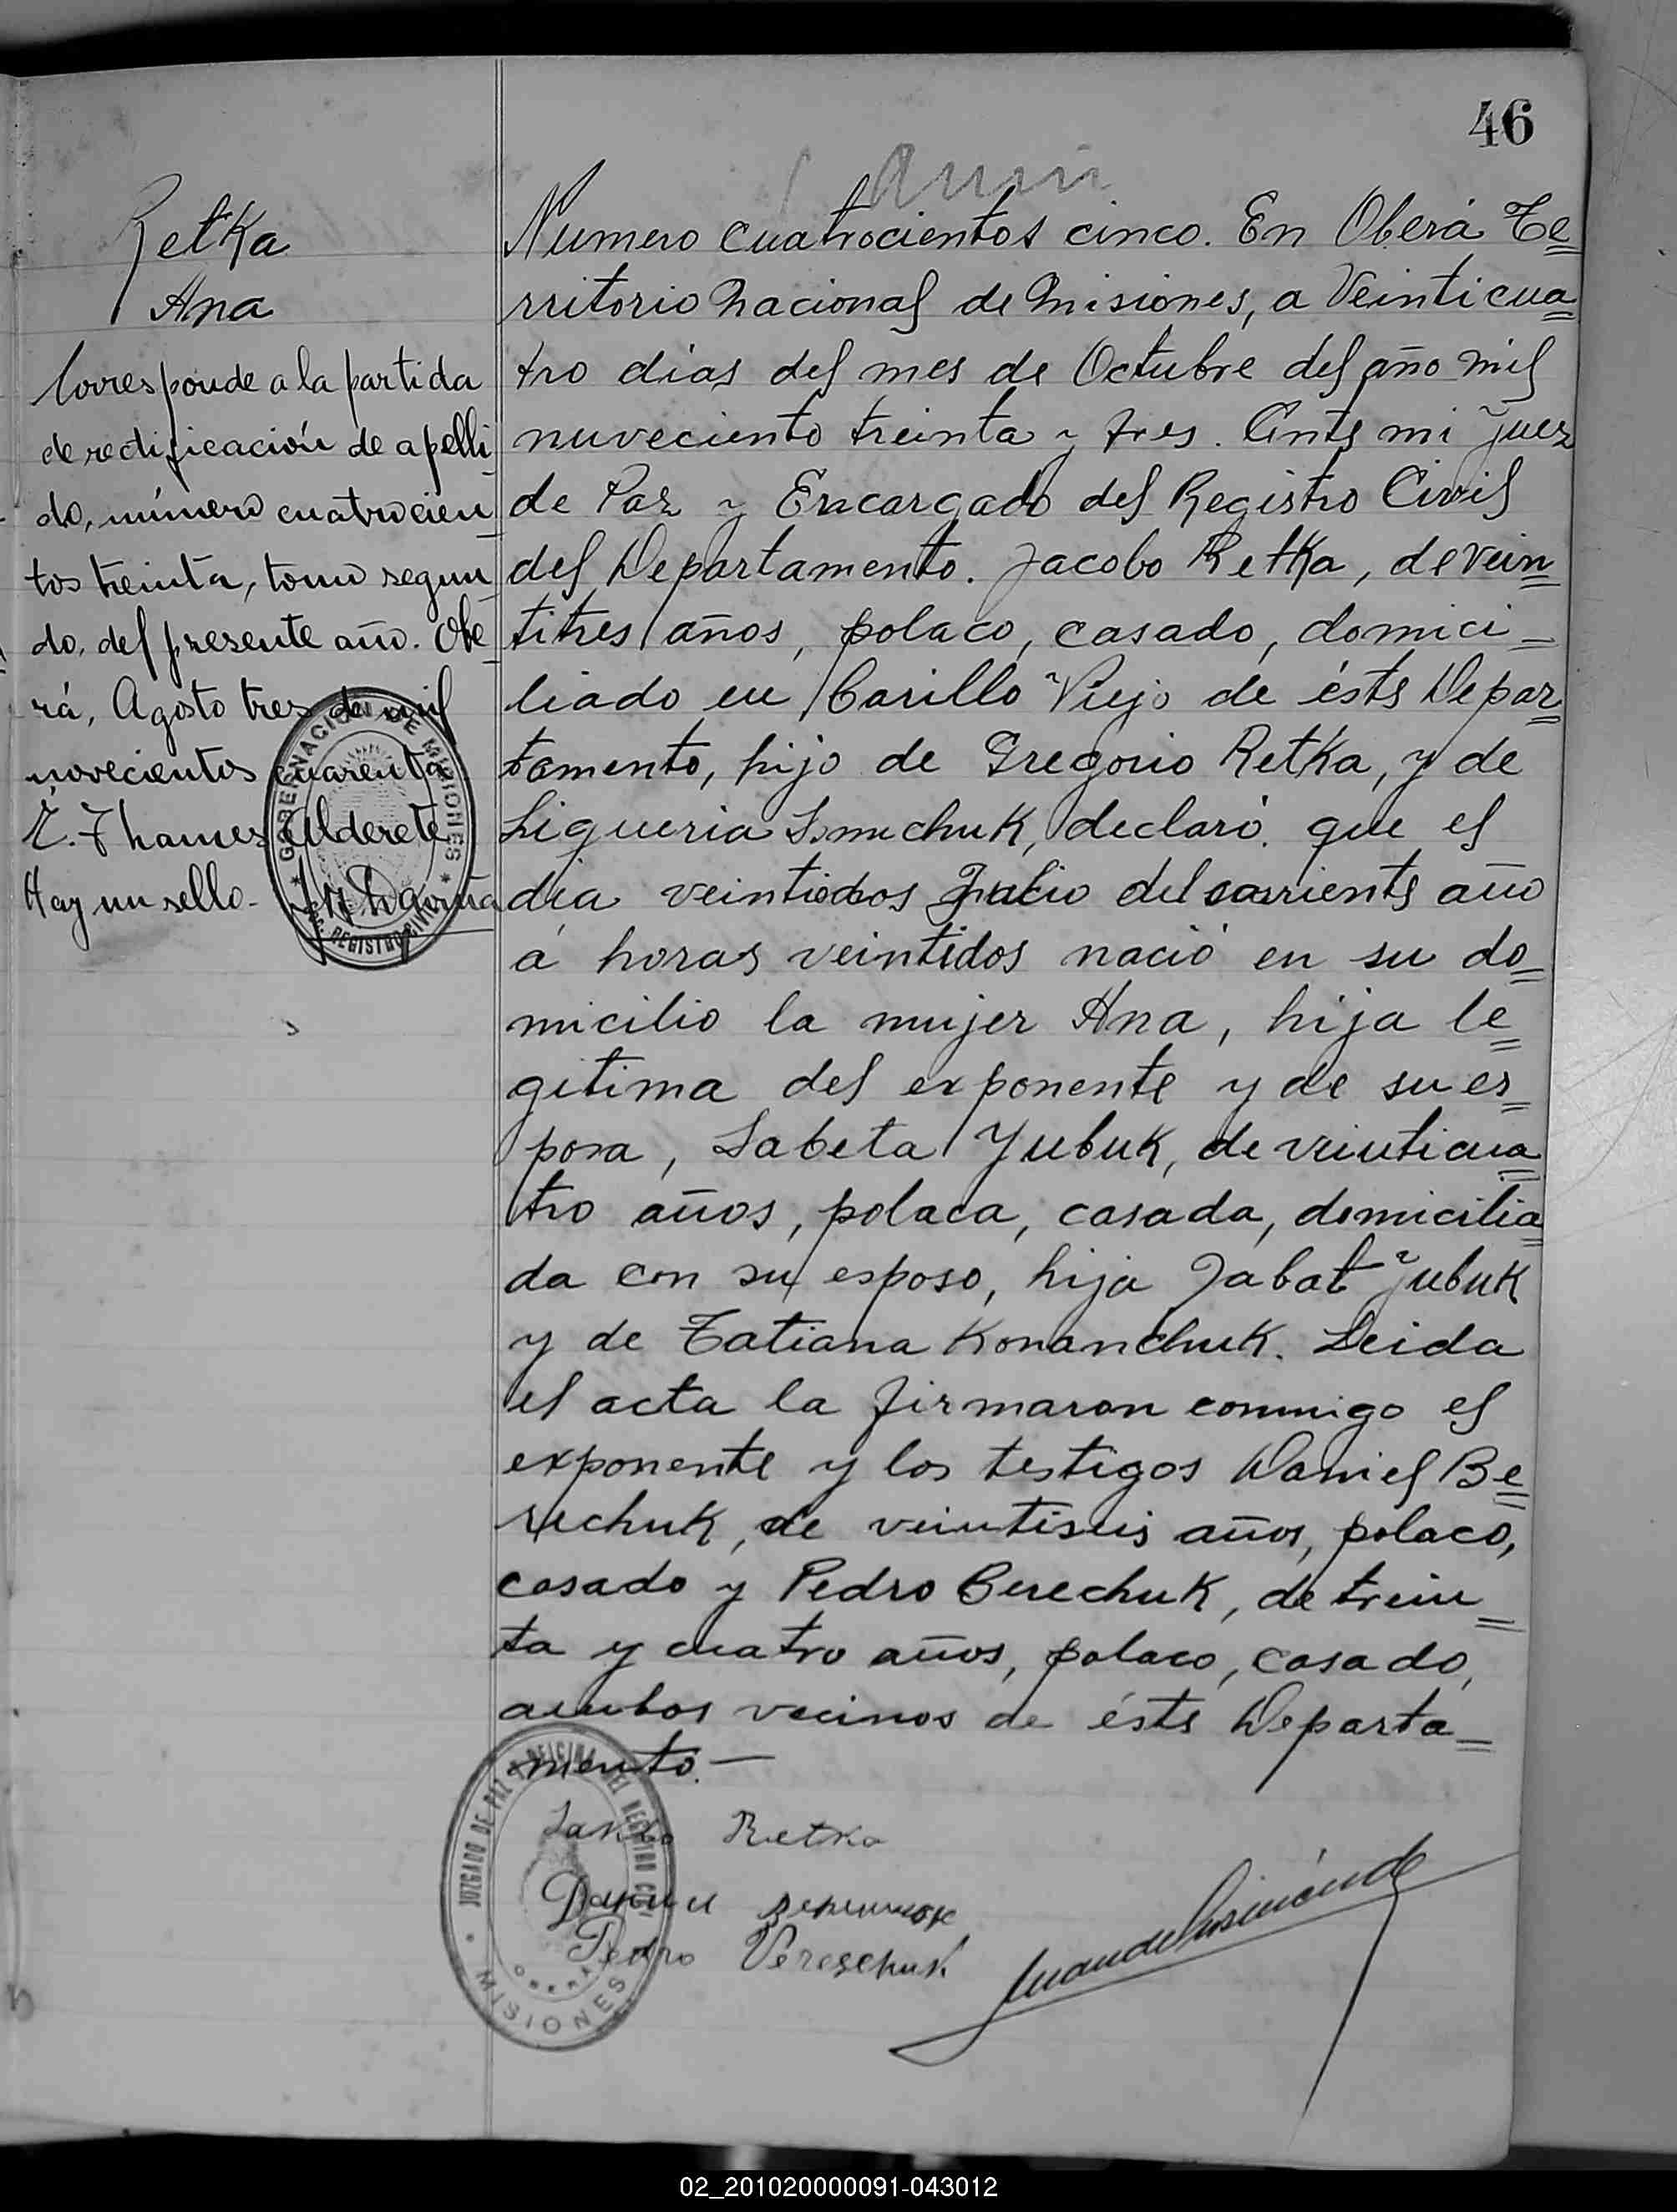 46
Retka
Ana
Corresponde a la partida
de rectificación de apelli
do, número cuatrocien
tos treinta, tomo segun
do, del presente año. Obe
rá, Agosto tres de mil
novecientos cuarenta
Thames Alderete
Hay un sello.
GOBERNACION DE MISIONES
REGISTRO CIVIL
Numero cuatrocientos cinco. En Oberá Te
rritorio Nacional de Misiones, a Veinticua
tro dias del mes de Octubre del año mil
nuveciento treinta y tres. Ante mi Juez
de Paz y Encargado del Registro Civil
del Departamento. Jacobo Retka, de vein
titres años, polaco, casado, domici-
liado en Carillo Viejo de éste Depar
tamento, hijo de Gregorio Retka, y de
Ligueria declaró que el
dia veintidos Julio del corriente año
á horas veintidos nació en su do
micilio la mujer Ana, hija le
gitima del exponente y de su es
posa, Sabeta Yubuk, de veinticua
tro años, polaca, casada, domicilia
da con su esposo, hija Jabat Yubuk
y de Tatiana Konanchuk. Leida
el acta la firmaron conmigo el
exponente y los testigos Daniel Be
rechuk, de veintiseis años, polaco,
casado y Pedro Berechuk, de trein
ta y cuatro años, polaco, casado,
ambos vecinos de éste Departa
mento.—
JUZGADO DE PAZ Y OFICINA DEL REGISTRO CIVIL
OBERA
MISIONES
Retka
Pedro Vereschuk
02_201020000091-043012